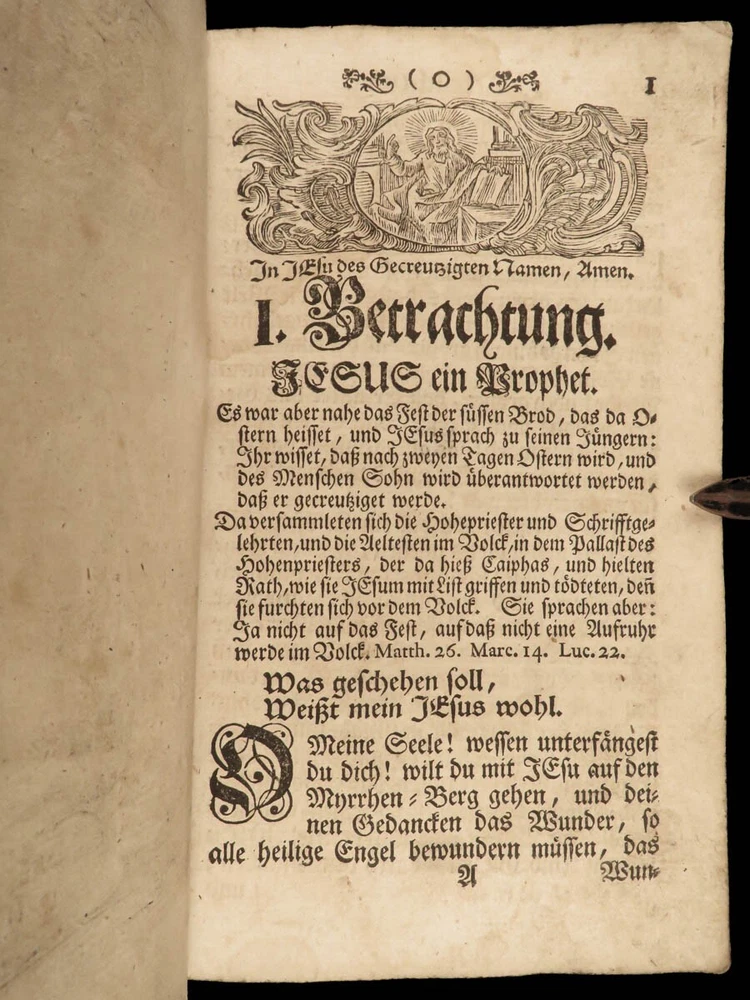 ( O ) 1
In JEsu des Gecreutzigten Namen, Amen.
I. Betrachtung.
JESUS ein Prophet.
Es war aber nahe das Fest der süssen Brod, das da O-
stern heisset, und JEsus sprach zu seinen Jüngern:
Ihr wisset, daß nach zweyen Tagen Ostern wird, und
des Menschen Sohn wird überantwortet werden,
daß er gecreutziget werde.
Da versammleten sich die Hohepriester und Schrifftge-
lehrten, und die Aeltesten im Volck, in dem Pallast des
Hohenpriesters, der da hieß Caiphas, und hielten
Rath, wie sie JEsum mit List griffen und tödteten, deñ
sie furchten sich vor dem Volck. Sie sprachen aber:
Ja nicht auf das Fest, auf daß nicht eine Aufruhr
werde im Volck. Matth. 26. Marc. 14. Luc. 22.
Was geschehen soll,
Weißt mein JEsus wohl.
O Meine Seele! wessen unterfängest
du dich! wilt du mit JEsu auf den
Myrrhen-Berg gehen, und dei-
nen Gedancken das Wunder, so
alle heilige Engel bewundern müssen, das
A Wun-